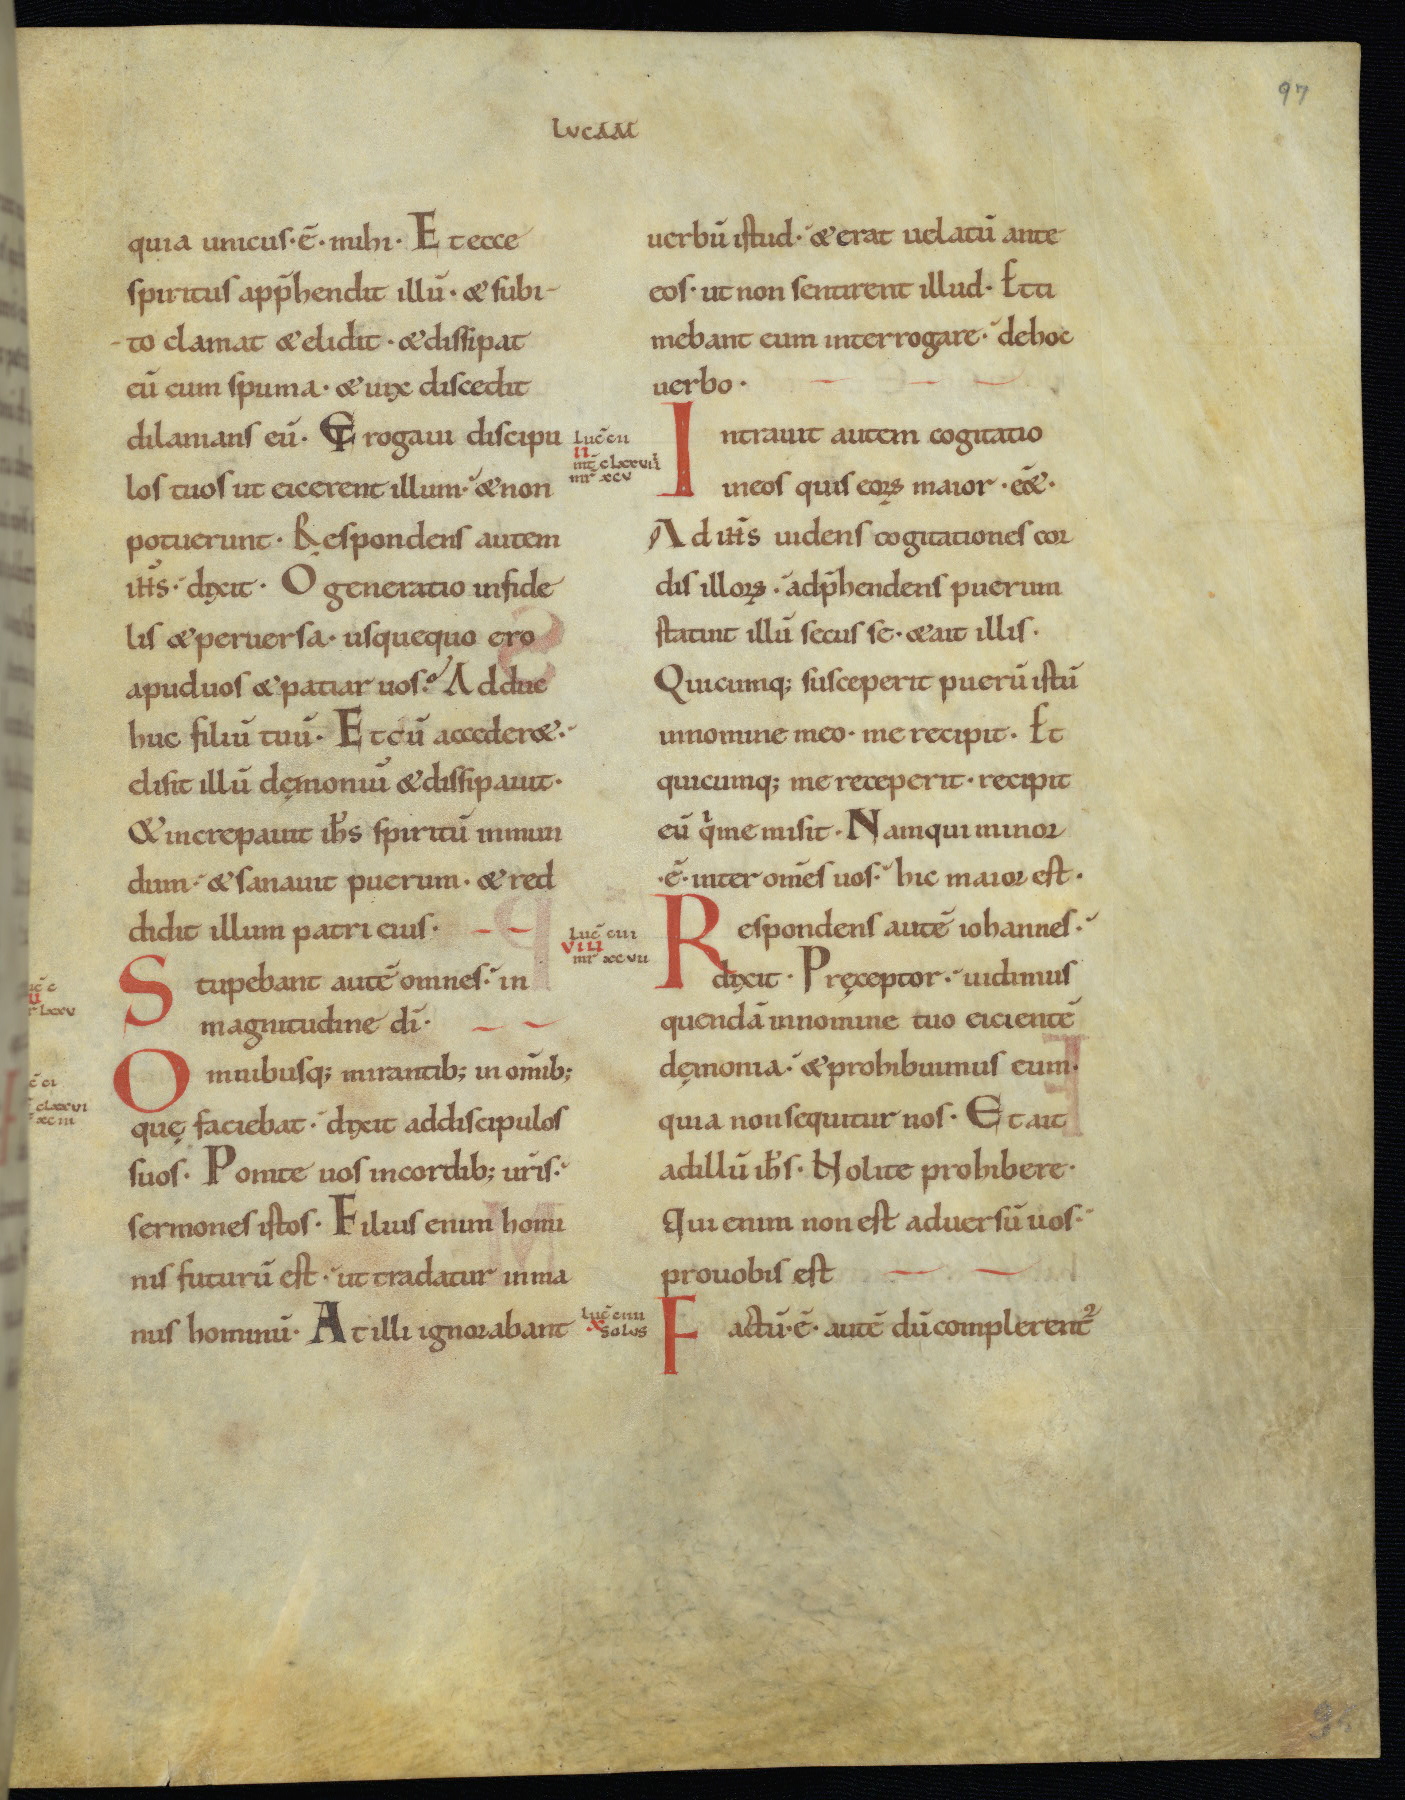 97
LUCAM
quia unicus·ē·mihi· Et ecce
spiritus app̄hendit illū· & subi-
-to clamat & elidit· & dissipat
eū cum spuma· & uix discedit
dilanians eū· Et rogaui discipu
los tuos ut eicerent illum· & non
potuerunt· Respondens autem
ih̄s· dixit· O generatio infide
lis & peruersa· usquequo ero
apud uos & patiar uos? Adduc
huc filiū tuū· Et cū acceder&·
elisit illū dęmoniū & dissipauit·
& increpauit ih̄s spiritū inmun
dum· & sanauit puerum· & red
didit illum patri eius·
Stupebant autē omnes· in
magnitudine dī·
Omnibusq; mirantib; in om̄ib;
quę faciebat· dixit ad discipulos
suos· Ponite uos in cordib; ur̄is·
sermones istos· Filius enim homi
nis futurū est· ut tradatur in ma
nus hominū· At illi ignorabant
uerbū istud· & erat uelatū ante
eos· ut non sentirent illud· Et ti
mebant eum interrogare· de hoc
uerbo·
Luc̄ cii
II
mt̄ clxxviii
mr̄ xcv
Intrauit autem cogitatio
in eos quis eoꝝ maior·e͞&·
Ad ih̄s uidens cogitationes cor
dis illoꝝ· adp̄hendens puerum
statuit illū secus se· & ait illis·
Quicumq; susceperit puerū istū
in nomine meo· me recipit· Et
quicumq; me receperit· recipit
eū qⁱ me misit· Nam qui minor
·ē·inter om̄es uos· hic maior est·
Luc̄ ciii
VIII
mr̄ xcvii
Respondens autē iohannes·
dixit· Pręceptor· uidimus
quendā in nomine tuo eicientē
dęmonia· & prohibuimus eum·
quia non sequitur nos· Et ait
ad illū ih̄s· Nolite prohibere·
Qui enim non est aduersū uos·
pro uobis est
Luc̄ ciiii
X
solus
Factū·ē· autē dū complerent᷑